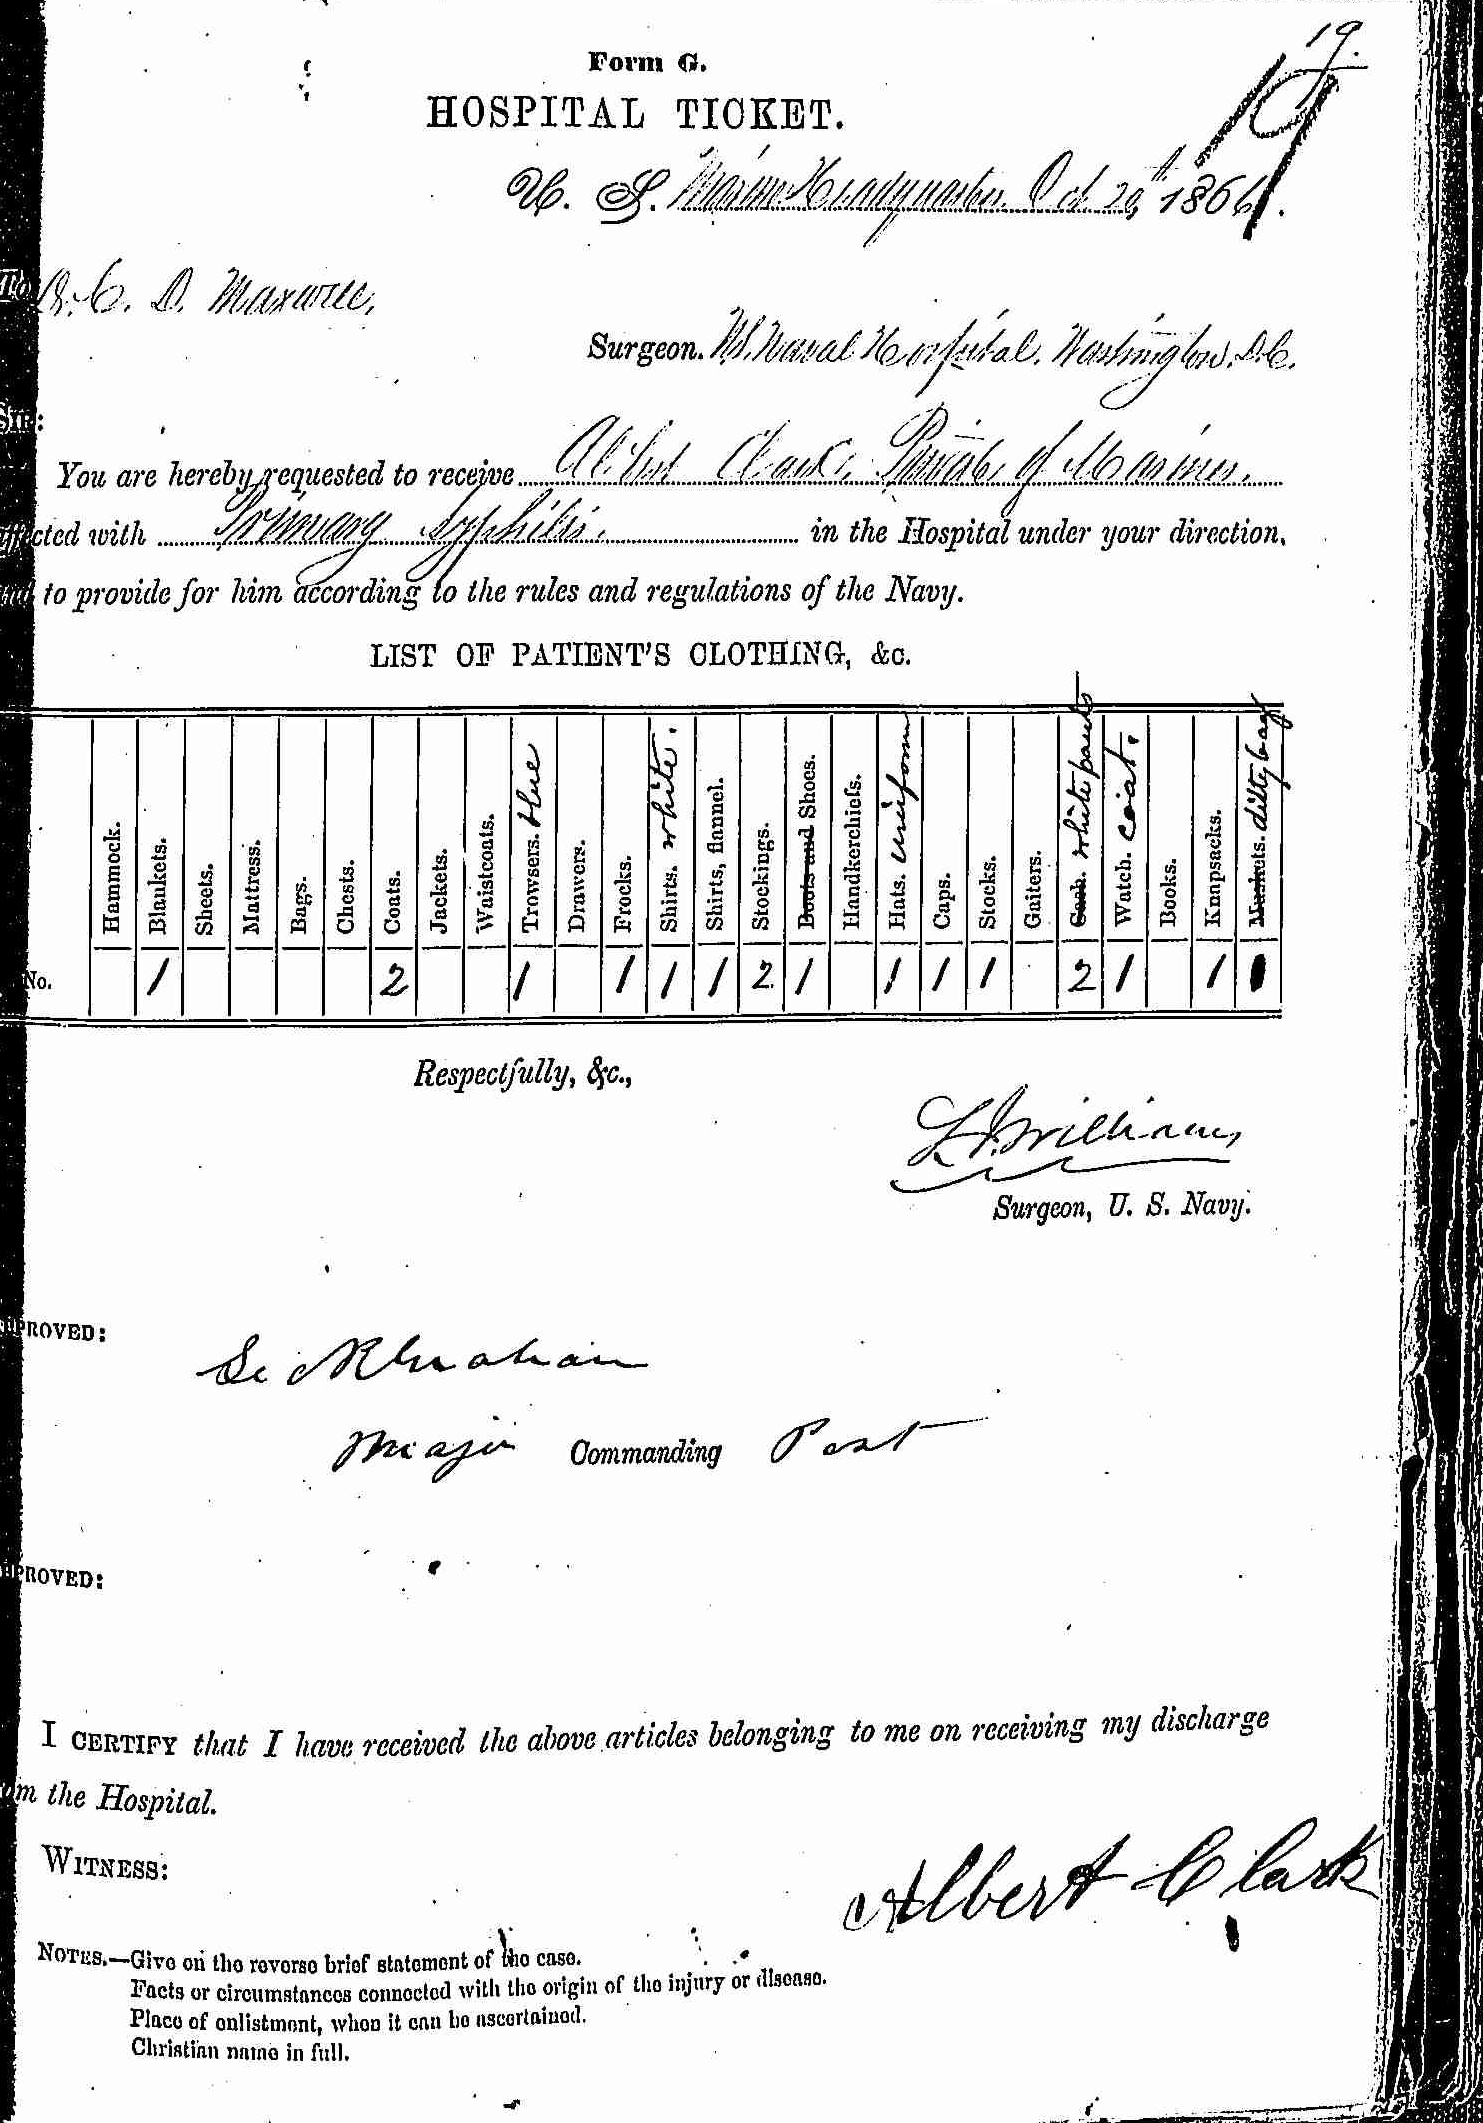 19.
19
Form G.
HOSPITAL TICKET.
U. S. Marine Headquarters. Oct 20th, 1866.
To Dr. C. D. Maxwell,
Surgeon. U.S. Naval Hospital. Washington. D.C.
SIR:
You are hereby requested to receive Albert Clark, Private of Marines,
affected with Primary Syphilis. in the Hospital under your direction,
and to provide for him according to the rules and regulations of the Navy.
LIST OF PATIENT'S CLOTHING, &c.
Hammock. Blankets. Sheets. Mattress. Bags. Chests. Coats. Jackets. Waistcoats. Trowsers. blue Drawers. Frocks. Shirts. white. Shirts, flannel. Stockings. Boots and Shoes. Handkerchiefs. Hats. uniform Caps. Stocks. Gaiters. white pants Watch. coat. Books. Knapsacks. ditty bag
No. 1 2 1 1 1 1 2 1 1 1 1 2 1 1 1
Respectfully, &c.,
L. J. Williams,
Surgeon, U. S. Navy.
APPROVED:
Graham
Major Commanding Post
APPROVED:
I CERTIFY that I have received the above articles belonging to me on receiving my discharge
from the Hospital.
WITNESS:
Albert Clark
NOTES.—Give on the reverse brief statement of the case.
Facts or circumstances connected with the origin of the injury or disease.
Place of enlistment, when it can be ascertained.
Christian name in full.